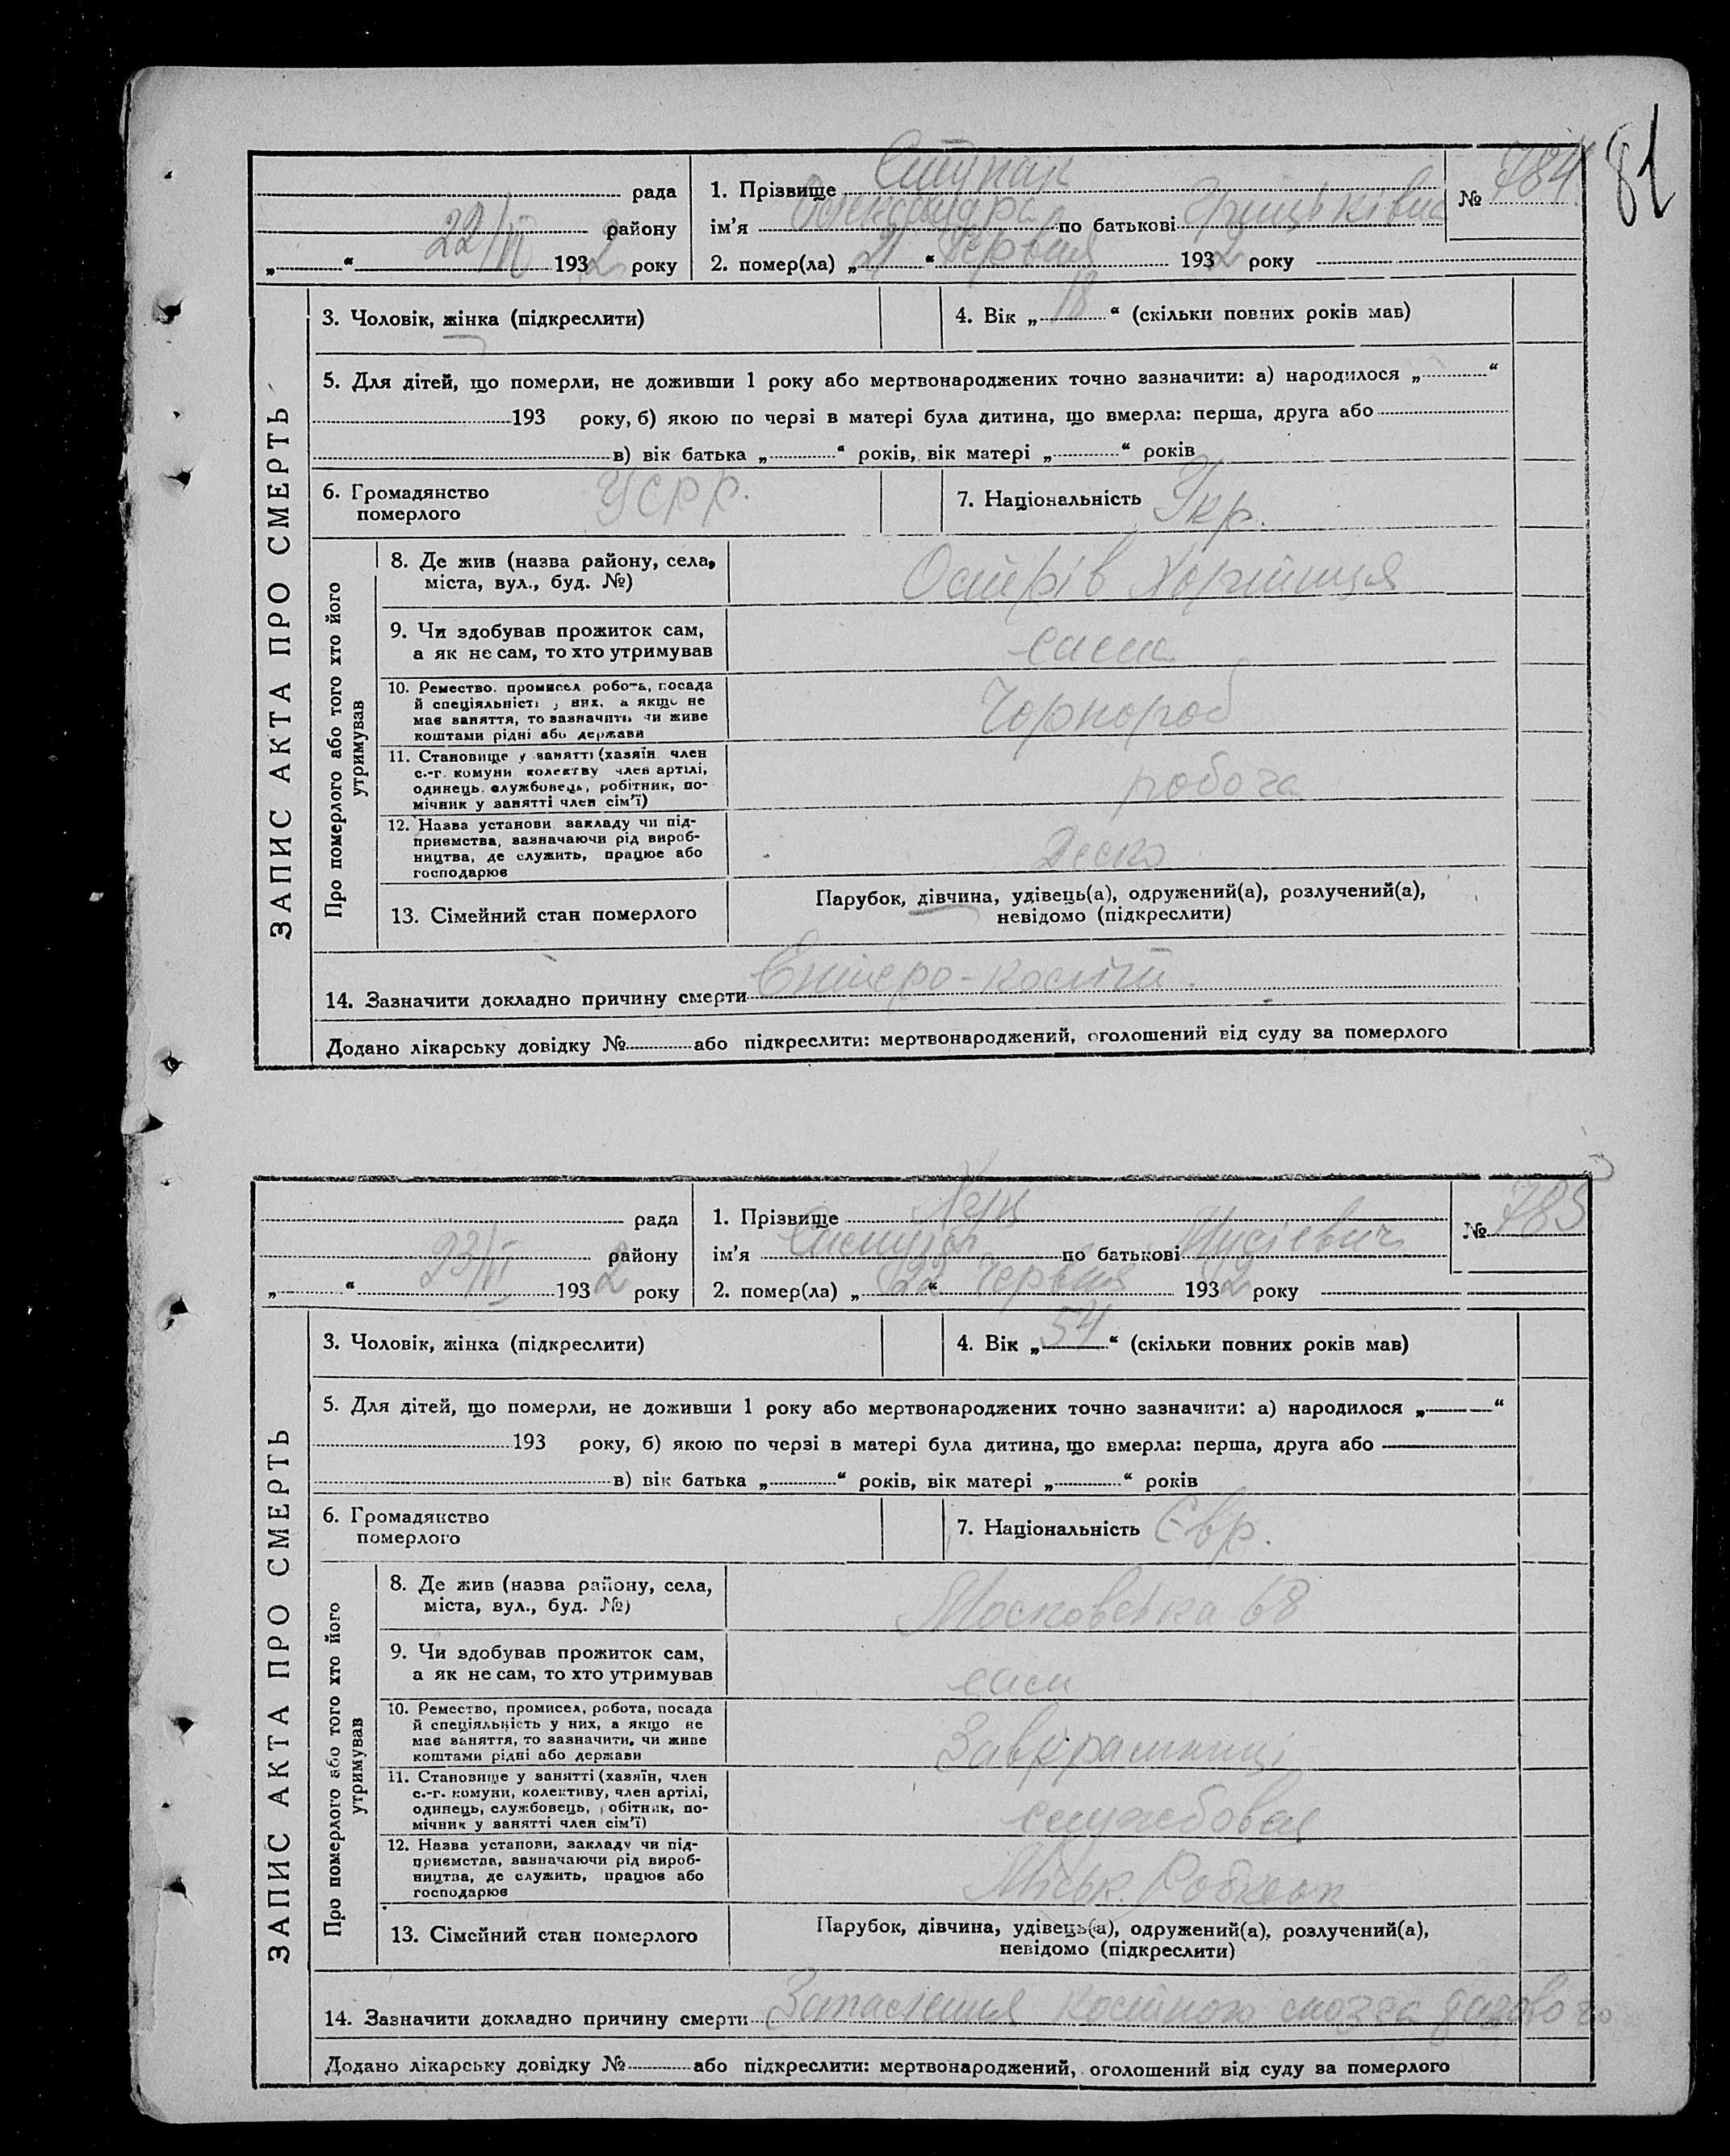 81
рада 1. Прізвище Ступак № 784
району ім'я Олександра по батькові Грицьківна
„ “ 22/VI 1932 року 2. помер(ла) „21“ Червня 1932 року
ЗАПИС АКТА ПРО СМЕРТЬ
3. Чоловік, жінка (підкреслити) 4. Вік „18“ (скільки повних років мав)
5. Для дітей, що померли, не доживши 1 року або мертвонароджених точно зазначити: а) народилося „ “
193 року, б) якою по черзі в матері була дитина, що вмерла: перша, друга або
в) вік батька „ “ років, вік матері „ “ років
6. Громадянство
померлого УСРР. 7. Національність Укр.
Про померлого або того хто його
утримував
8. Де жив (назва району, села,
міста, вул., буд. №) Острів Хортиця
9. Чи здобував прожиток сам,
а як не сам, то хто утримував сама
10. Ремество, промисел, робота, посада
й спеціяльність у них, а якщо не
має заняття, то зазначити чи живе
коштами рідні або держави Чорнороб
11. Становище у занятті (хазяїн, член
с.-г. комуни, колективу, член артілі,
одинець, службовець, робітник, по-
мічник у занятті член сім'ї) робоча
12. Назва установи, закладу чи під-
приємства, зазначаючи рід вироб-
ництва, де служить, працює або
господарює
13. Сімейний стан померлого Парубок, дівчина, удівець(а), одружений(а), розлучений(а),
невідомо (підкреслити)
14. Зазначити докладно причину смерти Ентеро-коліт.
Додано лікарську довідку № або підкреслити: мертвонароджений, оголошений від суду за померлого
рада 1. Прізвище № 785
району ім'я по батькові
„ “ 23/VI 1932 року 2. помер(ла) „22“ Червня 1932 року
ЗАПИС АКТА ПРО СМЕРТЬ
3. Чоловік, жінка (підкреслити) 4. Вік „54“ (скільки повних років мав)
5. Для дітей, що померли, не доживши 1 року або мертвонароджених точно зазначити: а) народилося „ “
193 року, б) якою по черзі в матері була дитина, що вмерла: перша, друга або
в) вік батька „ “ років, вік матері „ “ років
6. Громадянство
померлого 7. Національність Євр.
Про померлого або того хто його
утримував
8. Де жив (назва району, села,
міста, вул., буд. №) Московська 68
9. Чи здобував прожиток сам,
а як не сам, то хто утримував сам
10. Ремество, промисел, робота, посада
й спеціяльність у них, а якщо не
має заняття, то зазначити, чи живе
коштами рідні або держави Завкрамниці
11. Становище у занятті (хазяїн, член
с.-г. комуни, колективу, член артілі,
одинець, службовець, робітник, по-
мічник у занятті член сім'ї) службовець
12. Назва установи, закладу чи під-
приємства, зазначаючи рід вироб-
ництва, де служить, працює або
господарює Міськ. Робкооп
13. Сімейний стан померлого Парубок, дівчина, удівець(а), одружений(а), розлучений(а),
невідомо (підкреслити)
14. Зазначити докладно причину смерти Запалення
Додано лікарську довідку № або підкреслити: мертвонароджений, оголошений від суду за померлого